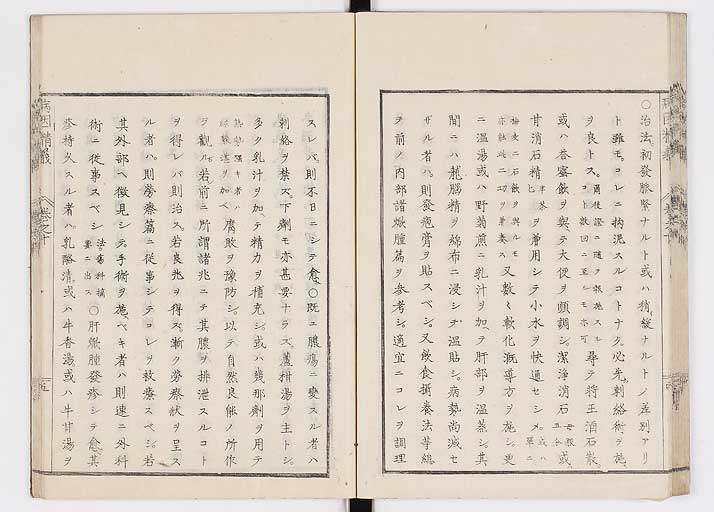 ○治法初發脉緊ナルト或ハ稍緩ナルトノ差別アリ
ト雖モ。コレニ拘泥スルコトナク。必先刺絡術ヲ施
ヲ良トス。爾後證ニ隨ヲ報施スルコト數回ニ至ルモ亦可 尋テ將王酒石散
或ハ答蜜飲ヲ與テ大便ヲ順調シ潔淨消石 毎服五分 或
甘消石精ヒヲ兼用シテ小水ヲ快通セシメ。或ハ單ニ
 又數軟化漑導方ヲ施シ更
ニ温湯或ハ野菊煎ニ乳汁ヲ加ヘ肝部ヲ温蒸シ其
間ニハ龍腦精ヲ綿布ニ浸シテ温貼シ。病勢尚減セ
ザル者ハ則發疱膏ヲ貼スベシ。又飲食攝養法等總
ヲ前ノ内部諸焮腫篇ヲ参考シ適宜ニコレヲ調理
スレバ則本日ニシテ愈○既ニ膿瘍ニ變スル者ハ
刺絡ヲ禁ズ。下劑モ亦甚要ナラズ。蘆柑湯ヲ主トシ。
多ク乳汁ヲ加ヘ精力ヲ補充シ。或ハ幾那劑ヲ用テ
 腐敗ヲ豫防シ。以テ自然良能ノ所作
ヲ觀ル若前ニ所謂諸兆ニテ其膿ヲ排泄スルコト
ヲ得レバ則治ス。若良兆ヲ得ズ漸ク勞療狀ヲ呈ス
ル者ハ。則勞療篇ニ從事シテコレヲ救療スベシ。若
其外部ヘ徴見シテ手術ヲ施ベキ者ハ則速ニ外科
術ニ從事スベシ 法外科摘要ニ出ス ○肝焮腫發疹シテ愈其
疹持久スル者ハ乳酪清或ハ牛香湯或ハ牛甘湯ヲ